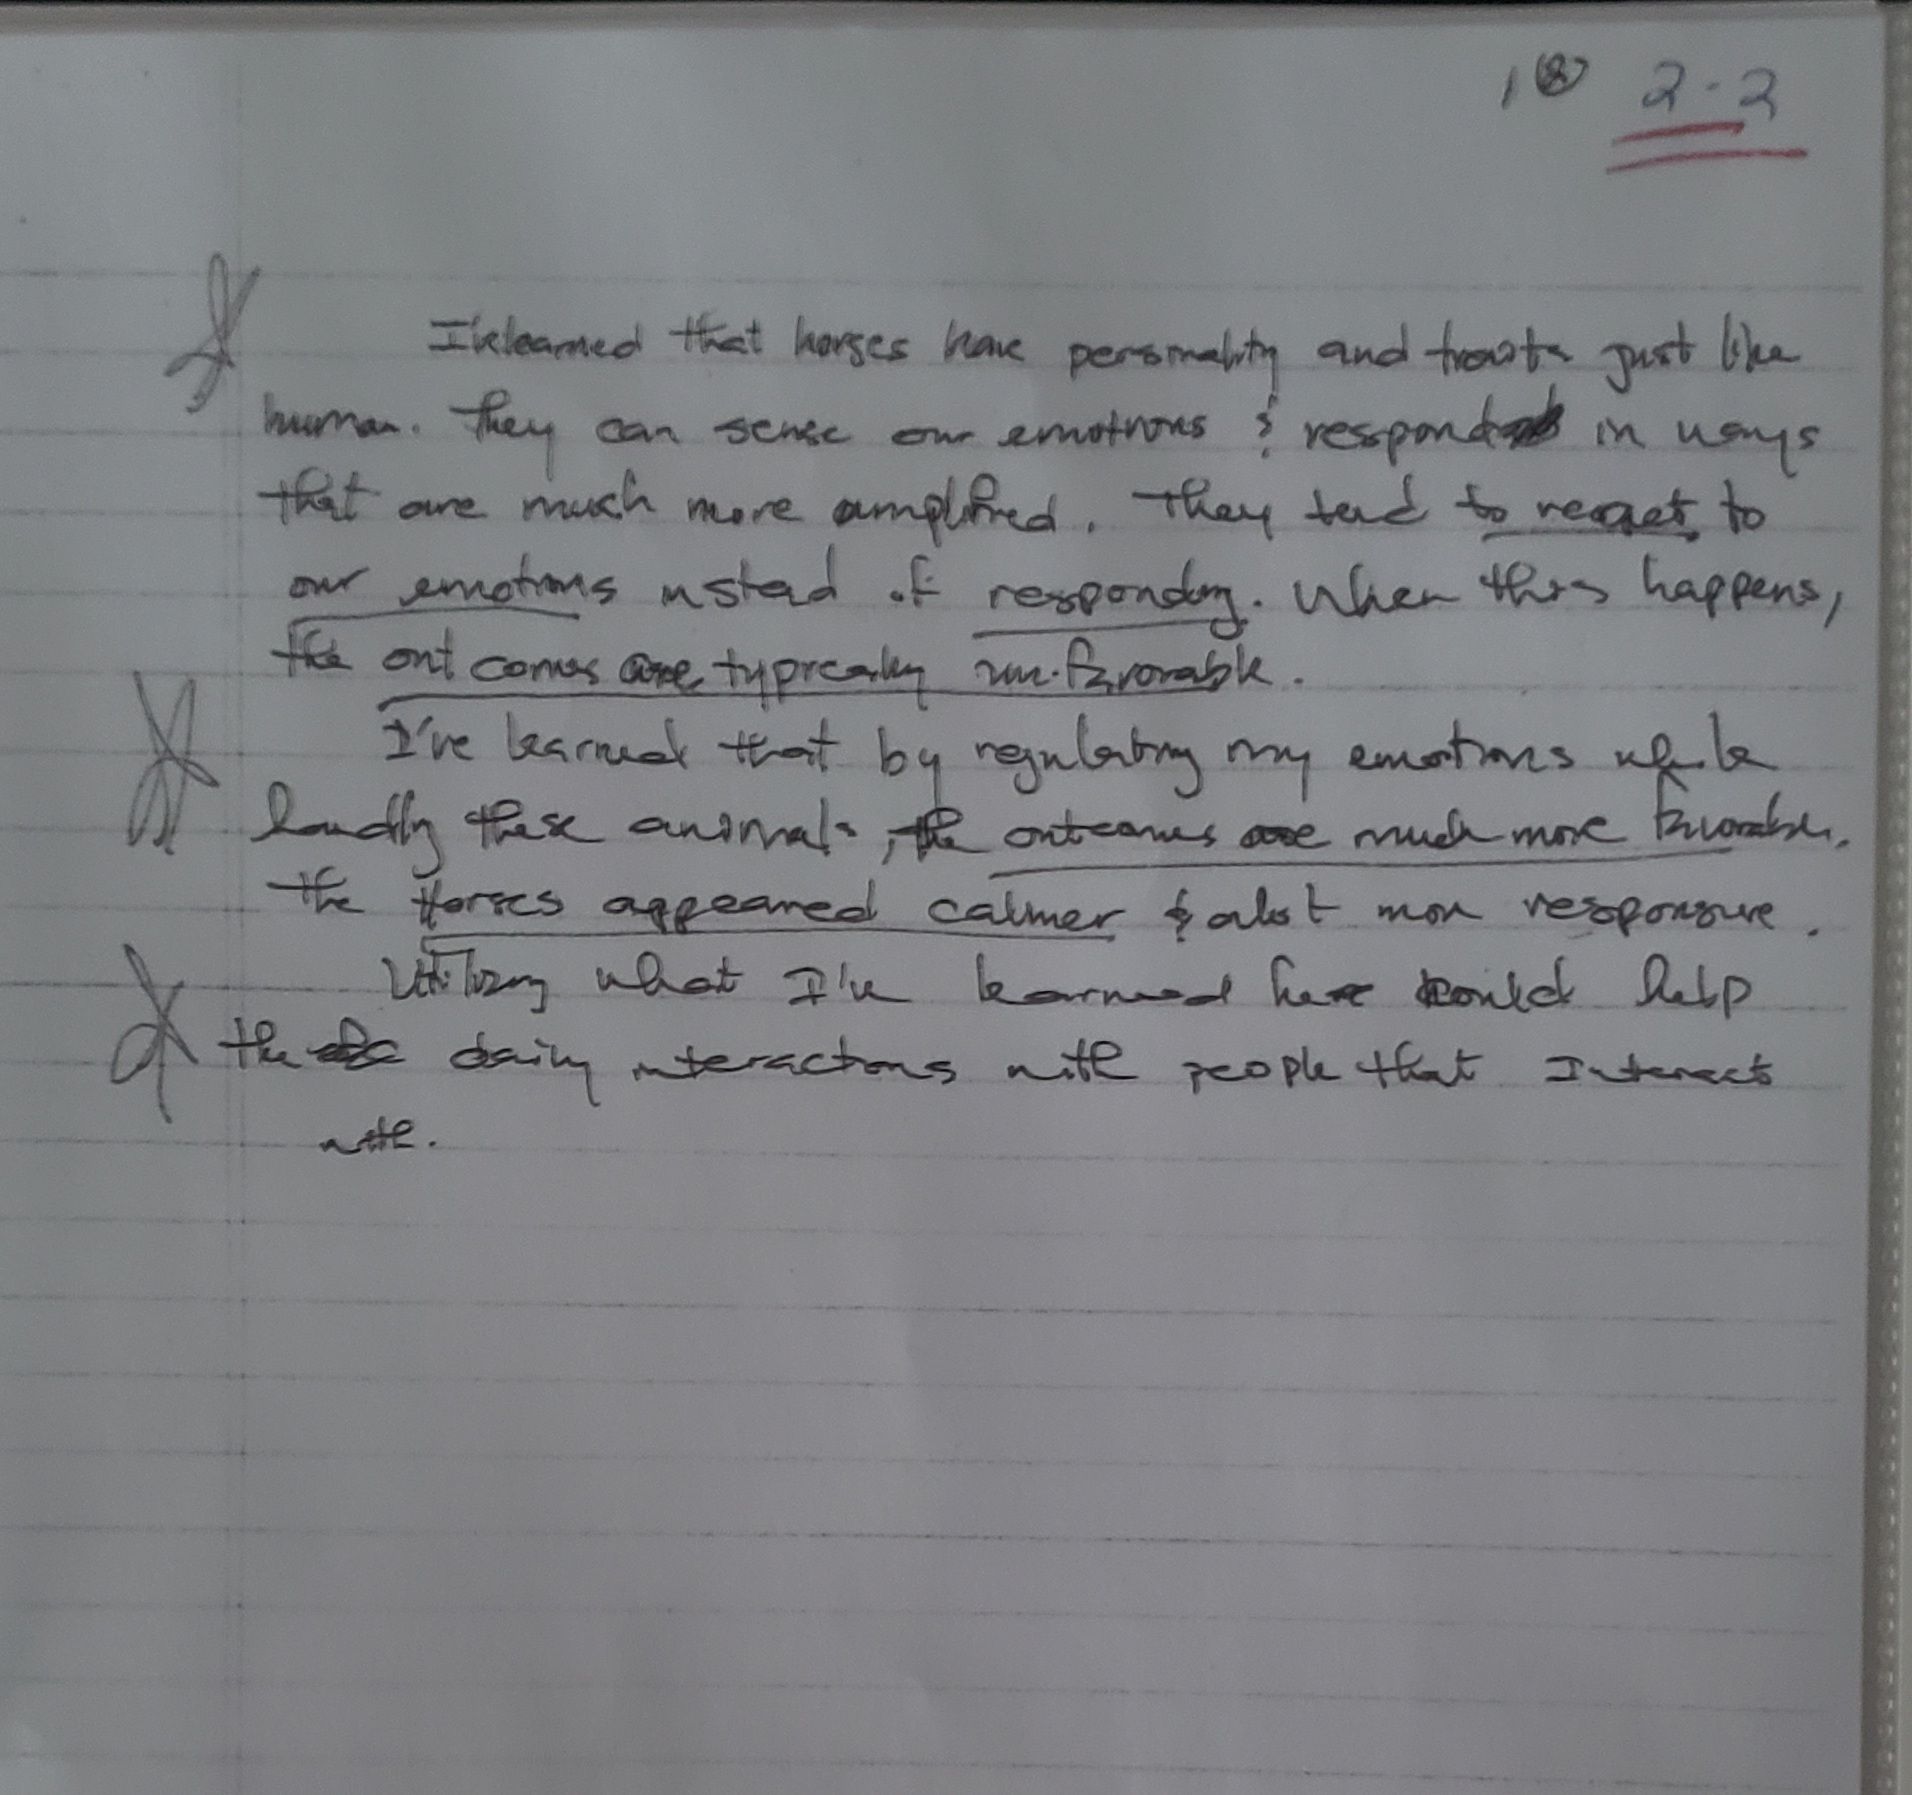 18 2-2
I've learned that horses have personality and traits just like
human. They can sense our emotions & respond in ways
that are much more amplified. They tend to react to
our emotions instead of responding. When this happens,
the out comes are typically un-favorable.
I've learned that by regulating my emotions while
handling these animals, the outcomes are much more favorable.
the Horses appeared calmer & more responsive.
Utilizing what I've learned here could help
the daily interactions with people that I interact
with.